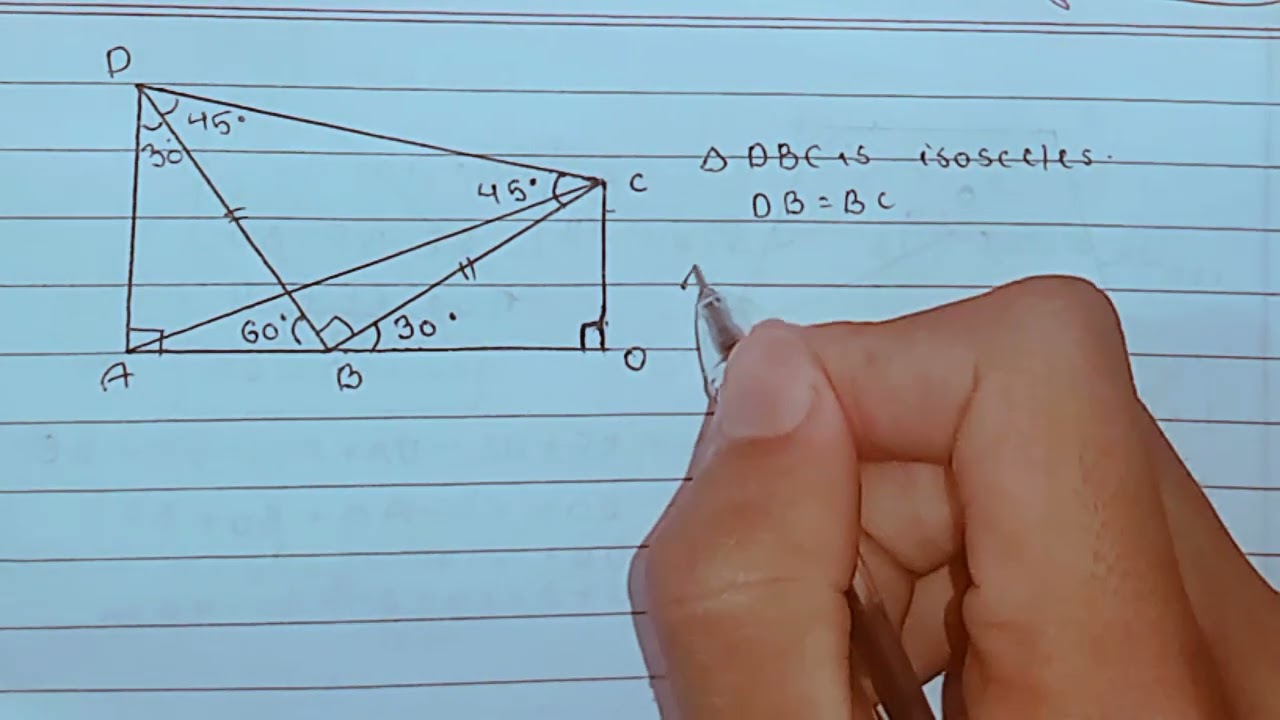 D
45°
30°
45°
C
△ DBC is isosceles.
DB = BC
60°
30°
A
B
O